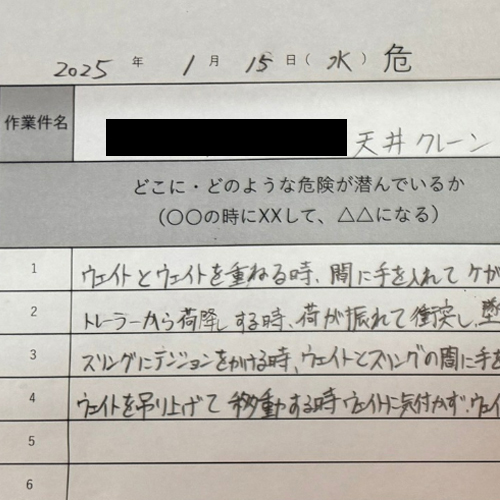 2025 年 1 月 15 日 ( 水 ) 危
作業件名
天井クレーン
どこに・どのような危険が潜んでいるか
(〇〇の時にXXして、△△になる)
1 ウェイトとウェイトを重ねる時、間に手を入れてケガ
2 トレーラーから荷降しする時、荷が振れて衝突し、墜
3 スリングにテンションをかける時、ウェイトとスリングの間に手を
4 ウェイトを吊り上げて移動する時ウェイトに気付かず、ウェイ
5
6